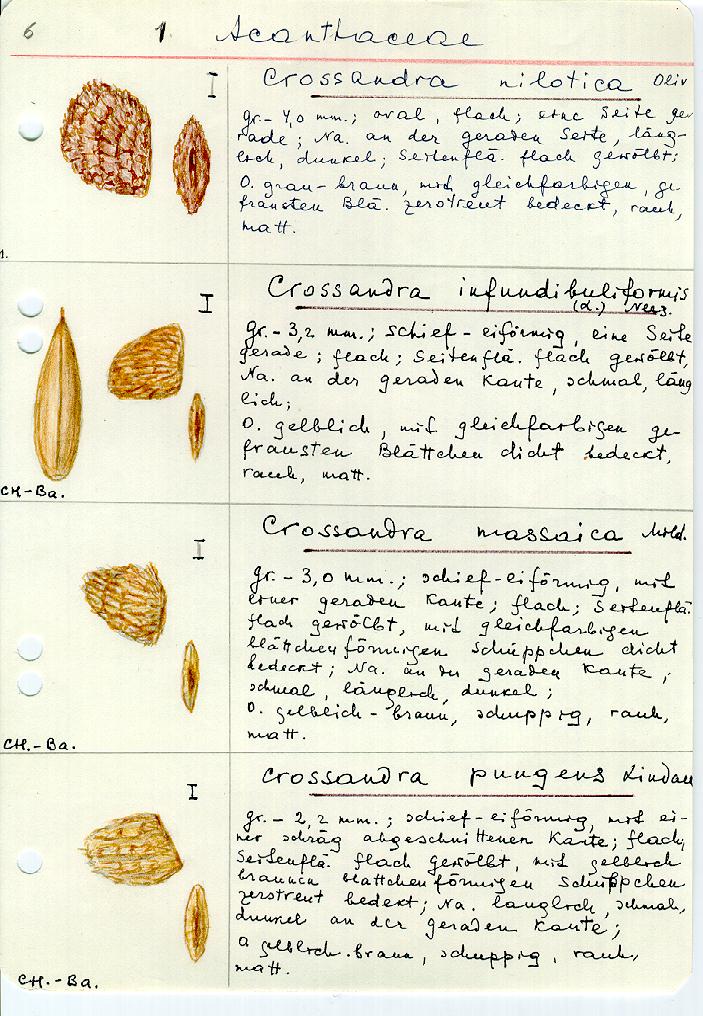 6 1. Acanthaceae
I
Crossandra nilotica Oliv
gr.- 4,0 mm.; oval, flach; eine Seite ge-
rade; Na. an der geraden Seite, läng-
lich, dunkel; Seitenflä. flach gewölbt;
O. grau-braun, mit gleichfarbigen, ge-
fransten Blä. zerstreut bedeckt, rauh,
matt.
1.
I
Crossandra infundibuliformis
(L.) Nees.
gr.- 3,2 mm.; schief-eiförmig, eine Seite
gerade; flach; Seitenflä. flach gewölbt,
Na. an der geraden Kante, schmal, läng
lich;
O. gelblich, mit gleichfarbigen ge-
fransten Blättchen dicht bedeckt,
rauh, matt.
CH-Ba.
I
Crossandra massaica Mild.
gr.- 3,0 mm.; schief-eiförmig, mit
einer geraden Kante; flach; Seitenflä.
flach gewölbt, mit gleichfarbigen
blättchenförmigen Schüppchen dicht
bedeckt; Na. an der geraden Kante,
schmal, länglich, dunkel;
O. gelblich-braun, schuppig, rauh,
matt.
CH.-Ba.
I
Crossandra pungens Lindau
gr.- 2,2 mm.; schief-eiförmig, mit ei-
ner schräg abgeschnittenen Kante; flach,
Seitenflä. flach gewölbt, mit gelblich
braunen blättchenförmigen Schüppchen
zerstreut bedekt; Na. länglich, schmal,
dunkel an der geraden Kante;
O gelblich-braun, schuppig, rauh,
matt.
CH.-Ba.